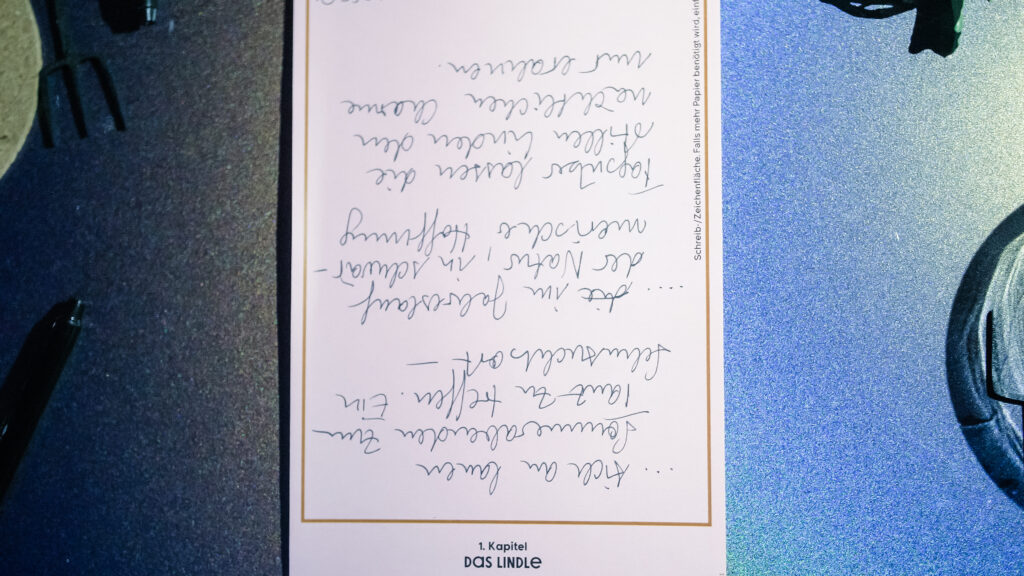 ... sich an lauen
Sommerabenden zum
Tanz zu treffen. Ein
Sehnsuchtsort –
... die im Jahreslauf
der Natur, in schwär-
merische Hoffnung
Tagsüber lassen die
stillen Linden den
nächtlichen Charme
nur erahnen.
Schreib-/Zeichenfläche. Falls mehr Papier benötigt wird, einf
1. Kapitel
DAS LINDLE